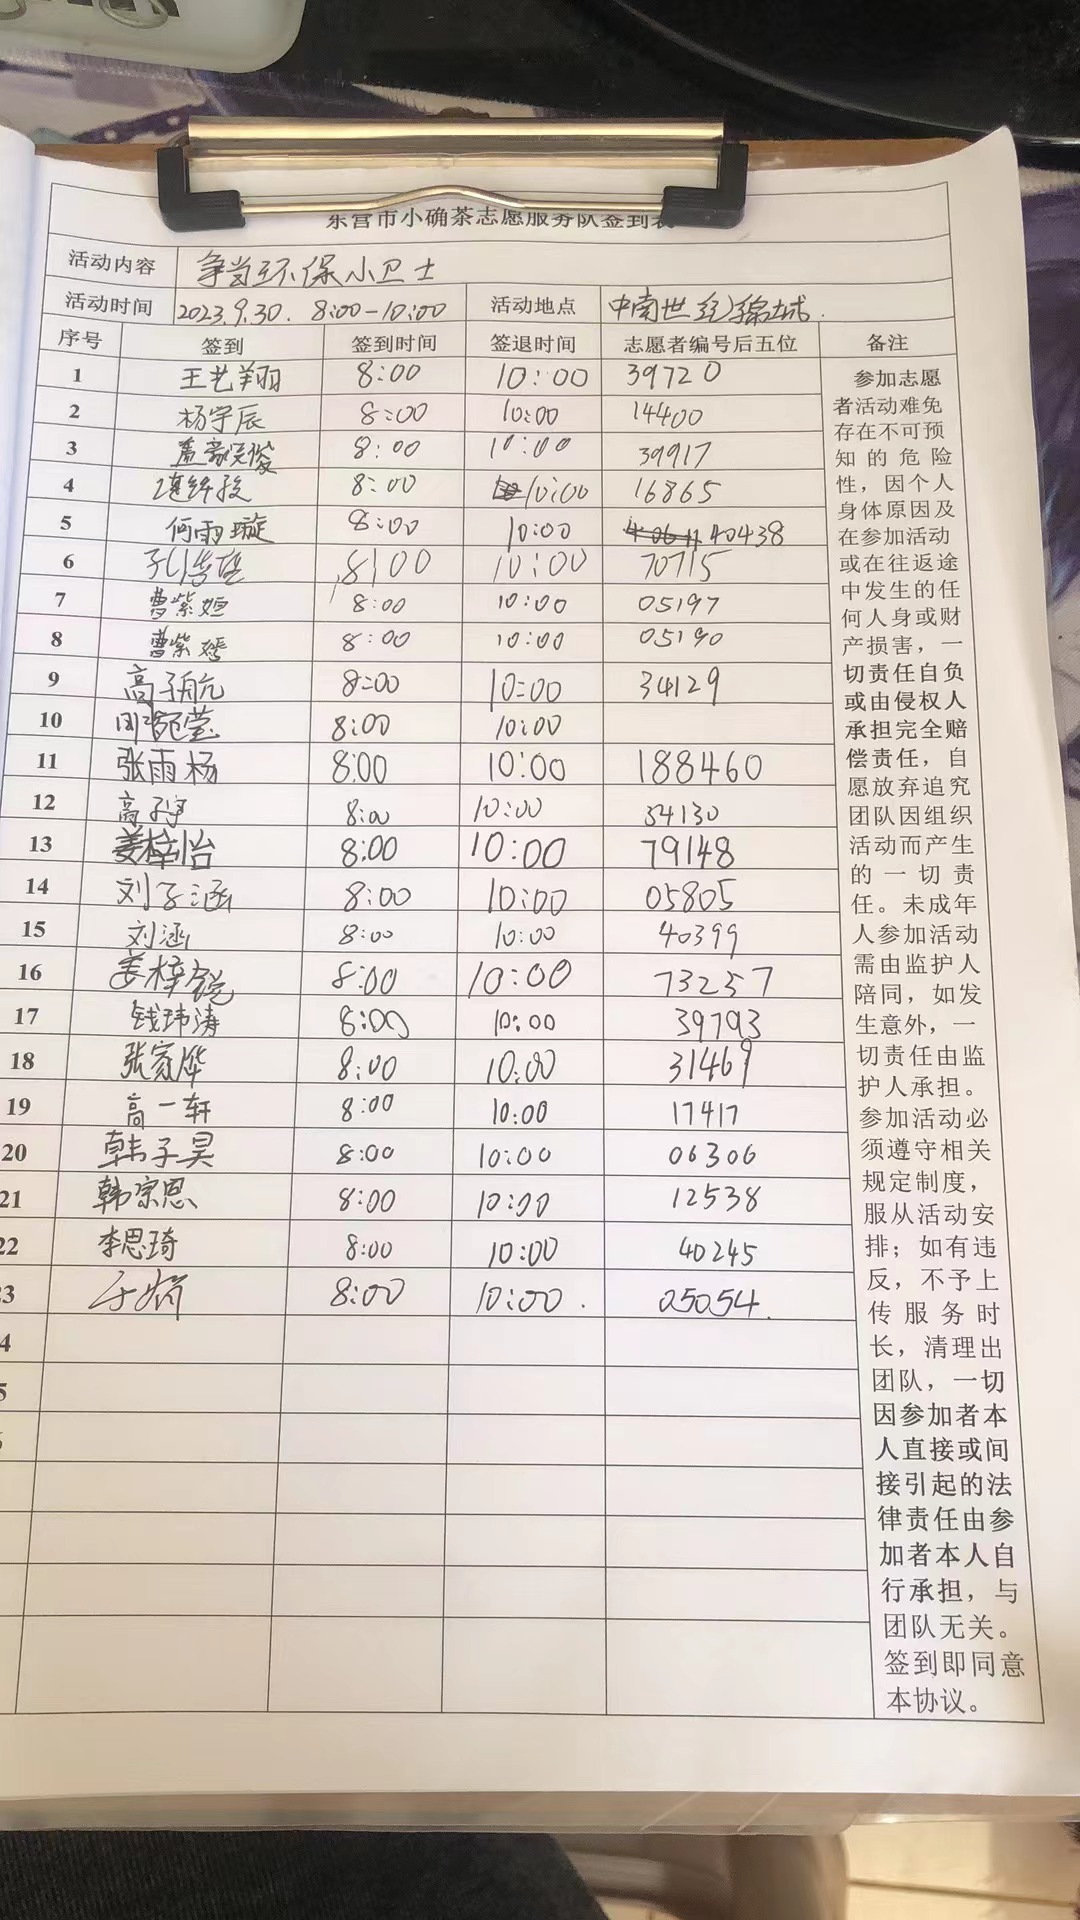 东营市小确茶志愿服务队签到表
活动内容 争当环保小卫士
活动时间 2023.9.30. 8:00-10:00 活动地点 中南世纪锦城.
序号 签到 签到时间 签退时间 志愿者编号后五位 备注
1 王艺翔 8:00 10:00 39720
2 杨宇辰 8:00 10:00 14400
3 8:00 10:00 39917
4 8:00 10:00 16865
5 何雨璇 8:00 10:00 40438
6 8:00 10:00 70715
7 曹紫姮 8:00 10:00 05197
8 曹紫嫣 8:00 10:00 05190
9 高子航 8:00 10:00 34129
10 8:00 10:00
11 张雨杨 8:00 10:00 188460
12 高子宇 8:00 10:00 34130
13 姜梓怡 8:00 10:00 79148
14 刘子涵 8:00 10:00 05805
15 刘涵 8:00 10:00 40399
16 姜梓锐 8:00 10:00 73257
17 钱玮涛 8:00 10:00 39793
18 张家烨 8:00 10:00 31469
19 高一轩 8:00 10:00 17417
20 韩子昊 8:00 10:00 06306
21 韩宗恩 8:00 10:00 12538
22 李思琦 8:00 10:00 40245
3 于 8:00 10:00. 05054.
4
5
参加志愿
者活动难免
存在不可预
知的危险
性，因个人
身体原因及
在参加活动
或在往返途
中发生的任
何人身或财
产损害，一
切责任自负
或由侵权人
承担完全赔
偿责任，自
愿放弃追究
团队因组织
活动而产生
的一切责
任。未成年
人参加活动
需由监护人
陪同，如发
生意外，一
切责任由监
护人承担。
参加活动必
须遵守相关
规定制度，
服从活动安
排；如有违
反，不予上
传服务时
长，清理出
团队，一切
因参加者本
人直接或间
接引起的法
律责任由参
加者本人自
行承担，与
团队无关。
签到即同意
本协议。